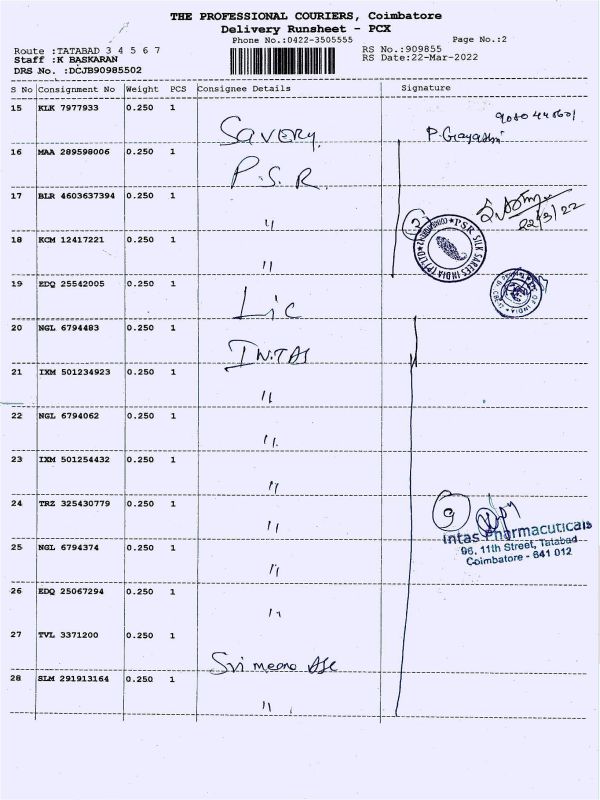 THE PROFESSIONAL COURIERS, Coimbatore
Delivery Runsheet - PCX
Phone No.:0422-3505555 Page No.:2
Route :TATABAD 3 4 5 6 7 RS No.:909855
Staff :K BASKARAN RS Date:22-Mar-2022
DRS No. :DCJB90985502
S No Consignment No Weight PCS Consignee Details Signature
15 KLK 7977933 0.250 1 Savery P. Gayathri
16 MAA 289598006 0.250 1 P.S.R.
17 BLR 4603637394 0.250 1 "
22/3/22
18 KCM 12417221 0.250 1 "
3
PSR SILK SAREES INDIA (P) LTD
19 EDQ 25542005 0.250 1 Lic
OF INDIA
20 NGL 6794483 0.250 1 INTAS
21 IXM 501234923 0.250 1 "
22 NGL 6794062 0.250 1 "
23 IXM 501254432 0.250 1 "
24 TRZ 325430779 0.250 1 " 9
Intas Pharmacuticals
96, 11th Street, Tatabad
Coimbatore - 641 012
25 NGL 6794374 0.250 1 "
26 EDQ 25067294 0.250 1 "
27 TVL 3371200 0.250 1 Sri
28 SLM 291913164 0.250 1 "